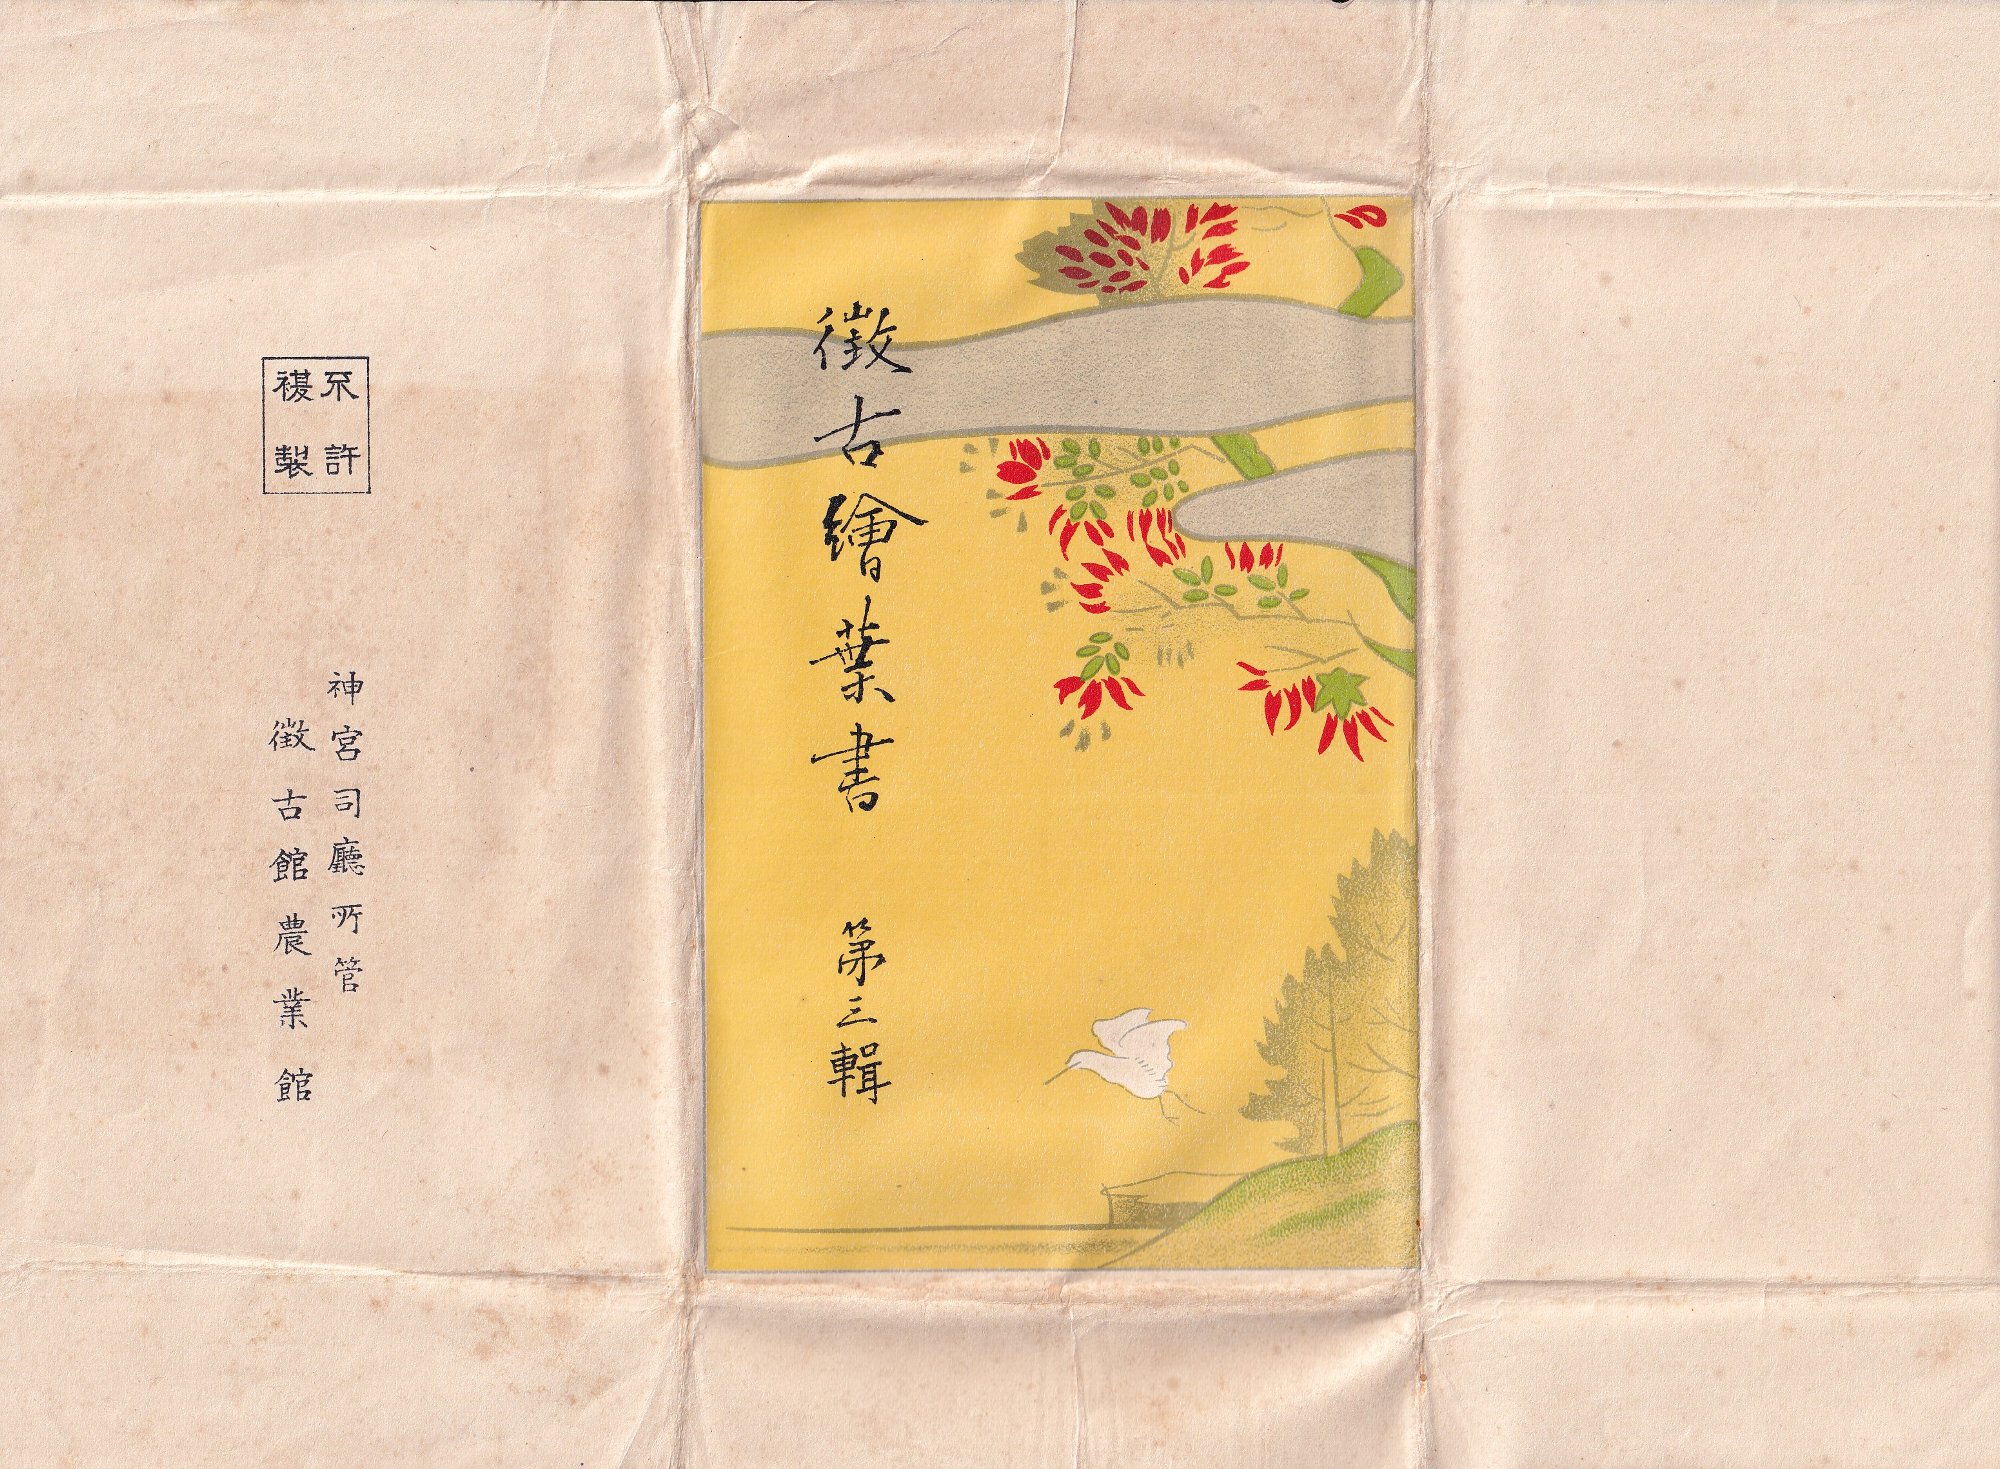 徴古繪葉書 第三輯
不許
複製
神宮司廳所管
徴古館農業館